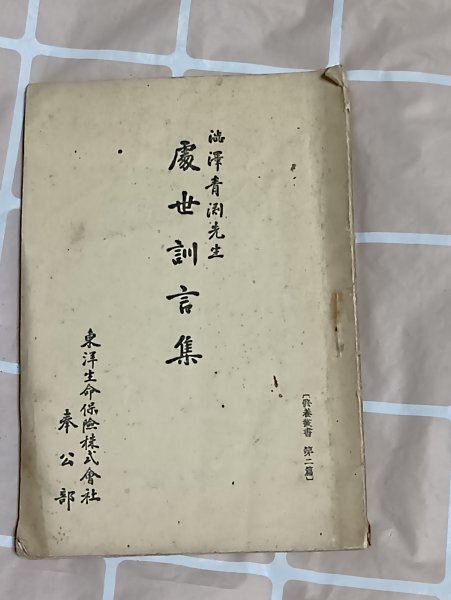 [修養叢書 第二篇]
澁澤青渊先生
處世訓言集
東洋生命保險株式會社
奉公部